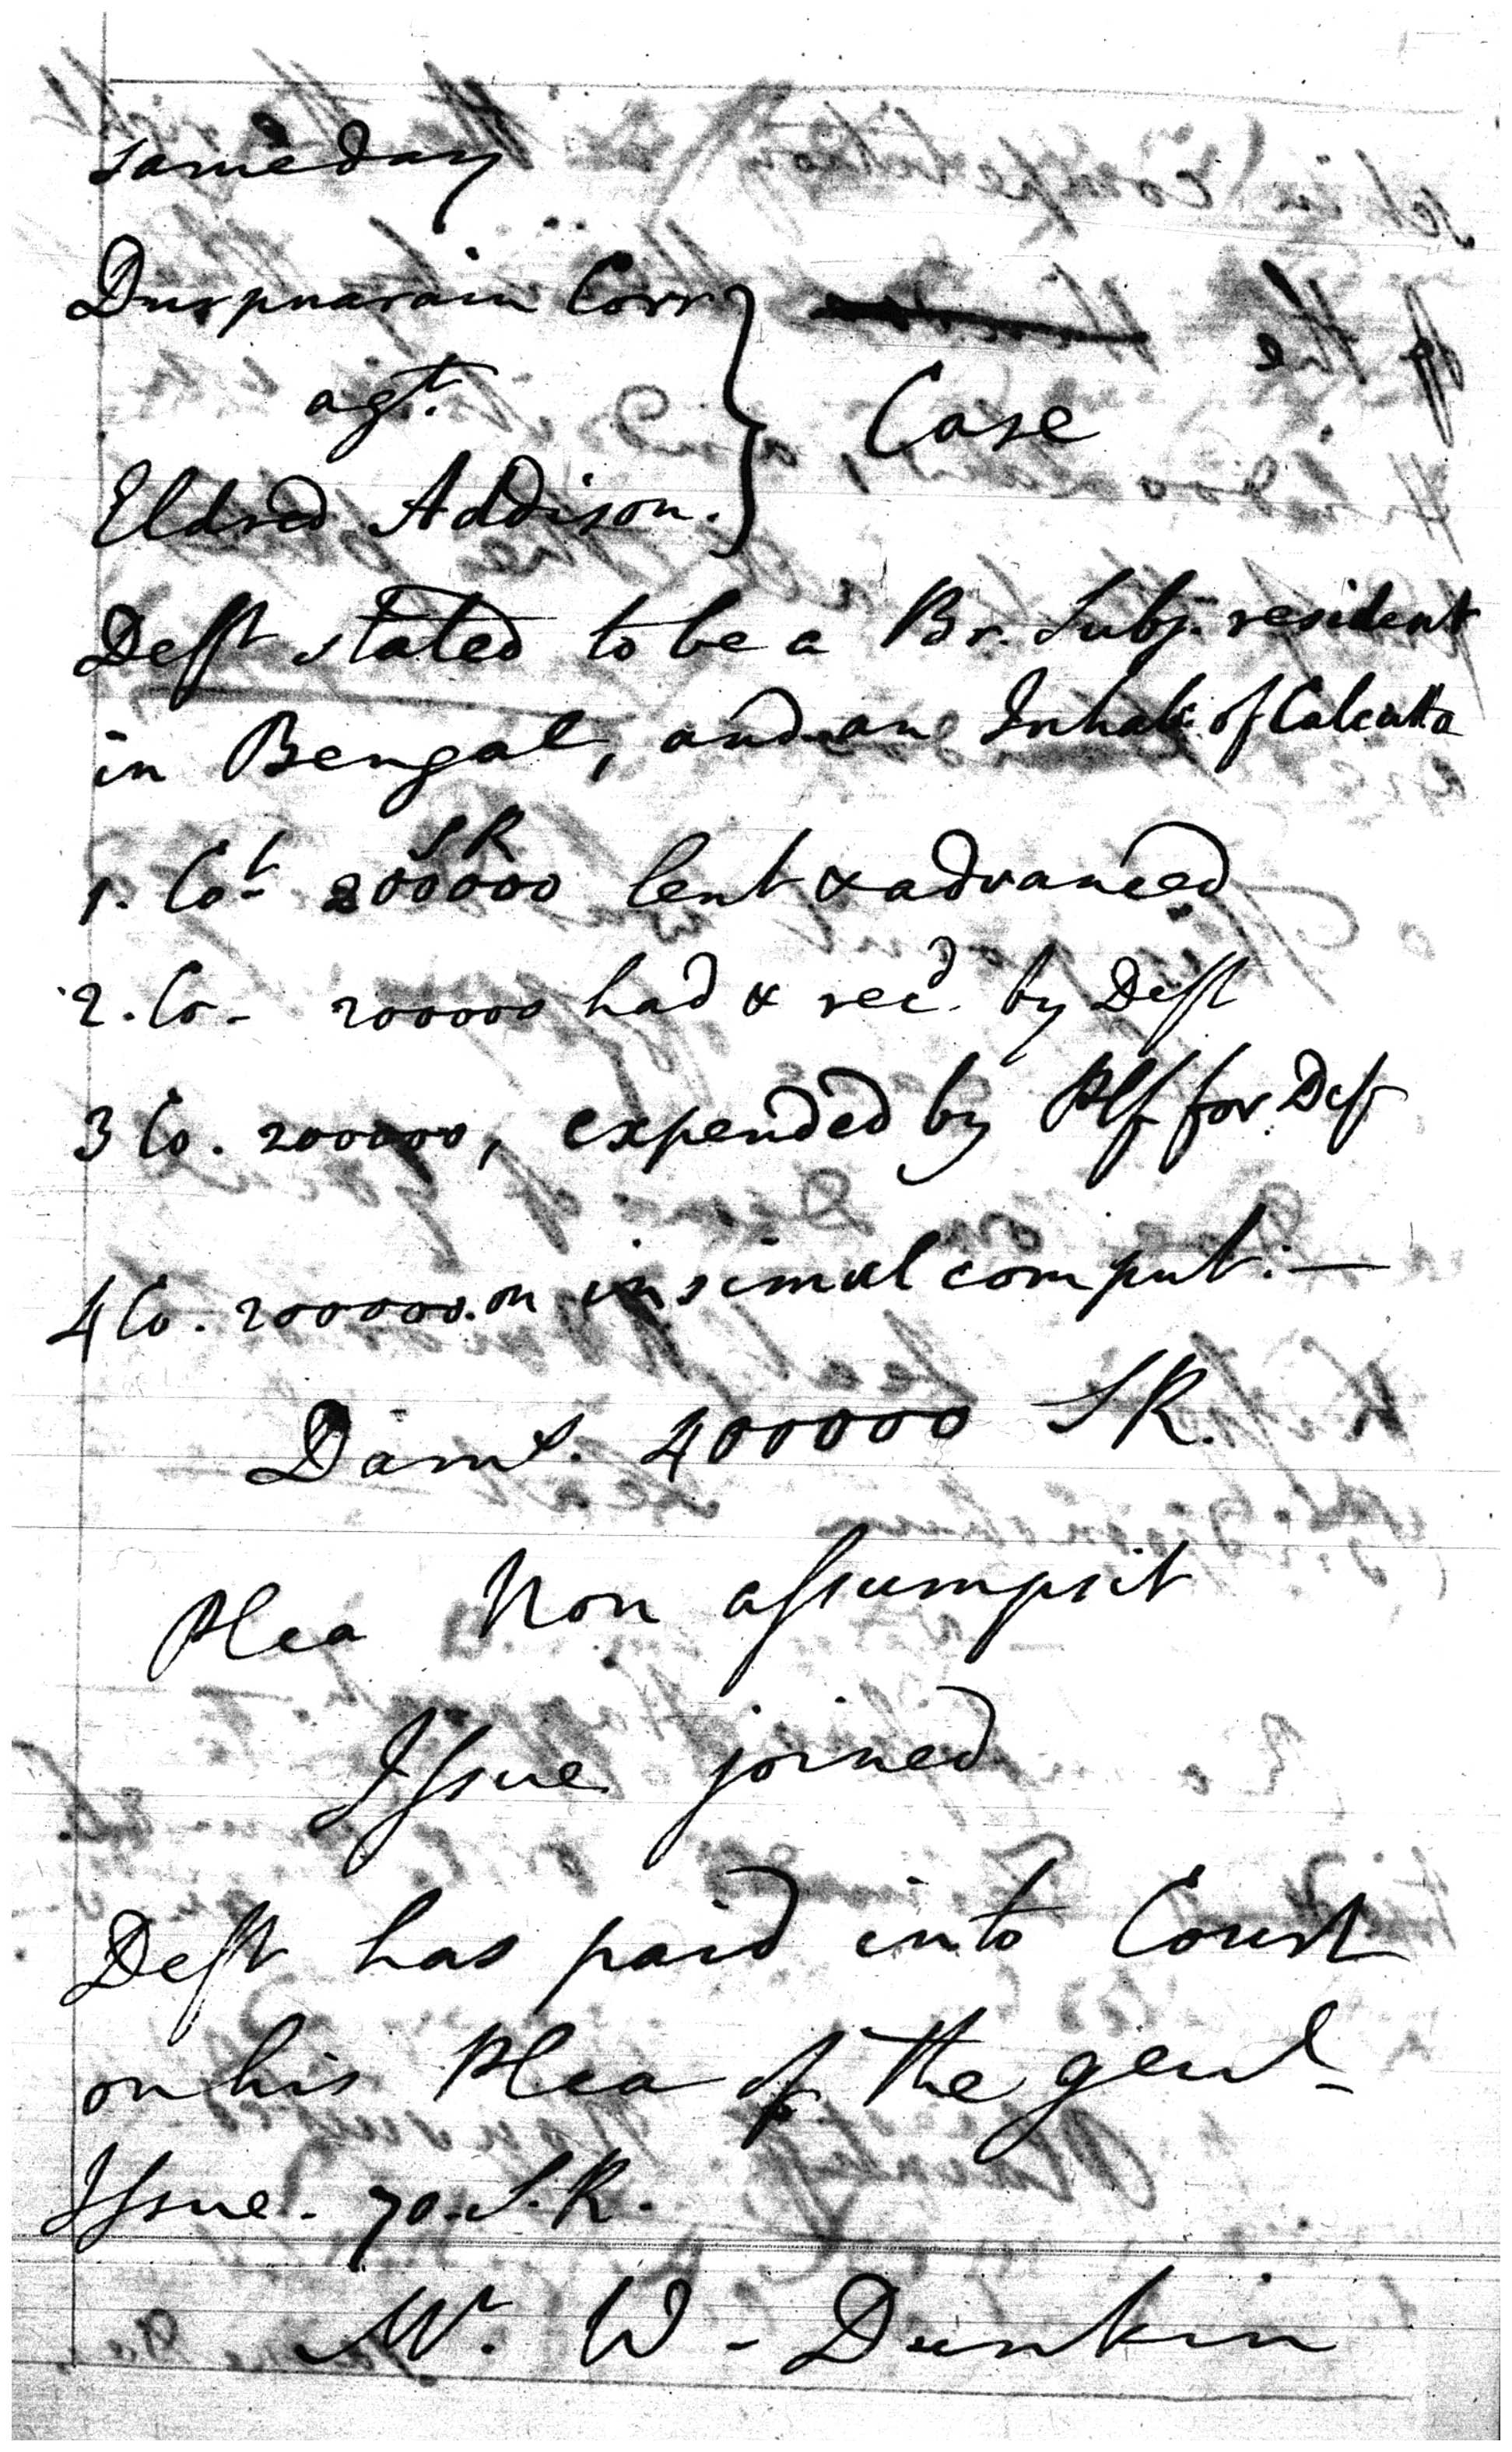 same day
Durpnarain Corr
agt.
Eldred Addison.
Case
Deft stated to be a Br. Subj. resident
in Bengal, and an Inhabt. of Calcutta
SR
1. Cot 200000 lent & advanced
2. Co - 200000 had & recd. by Deft
3 Co. 200000, expended by Plf for Deft
4 Co. 200000. on insimul comput. —
Dams. 400000 SR.
Plea Non assumpsit
Issue joined
Deft has paid into Court
on his Plea of the genl
Issue. 70. S.R.
Mr. W - Dunkin